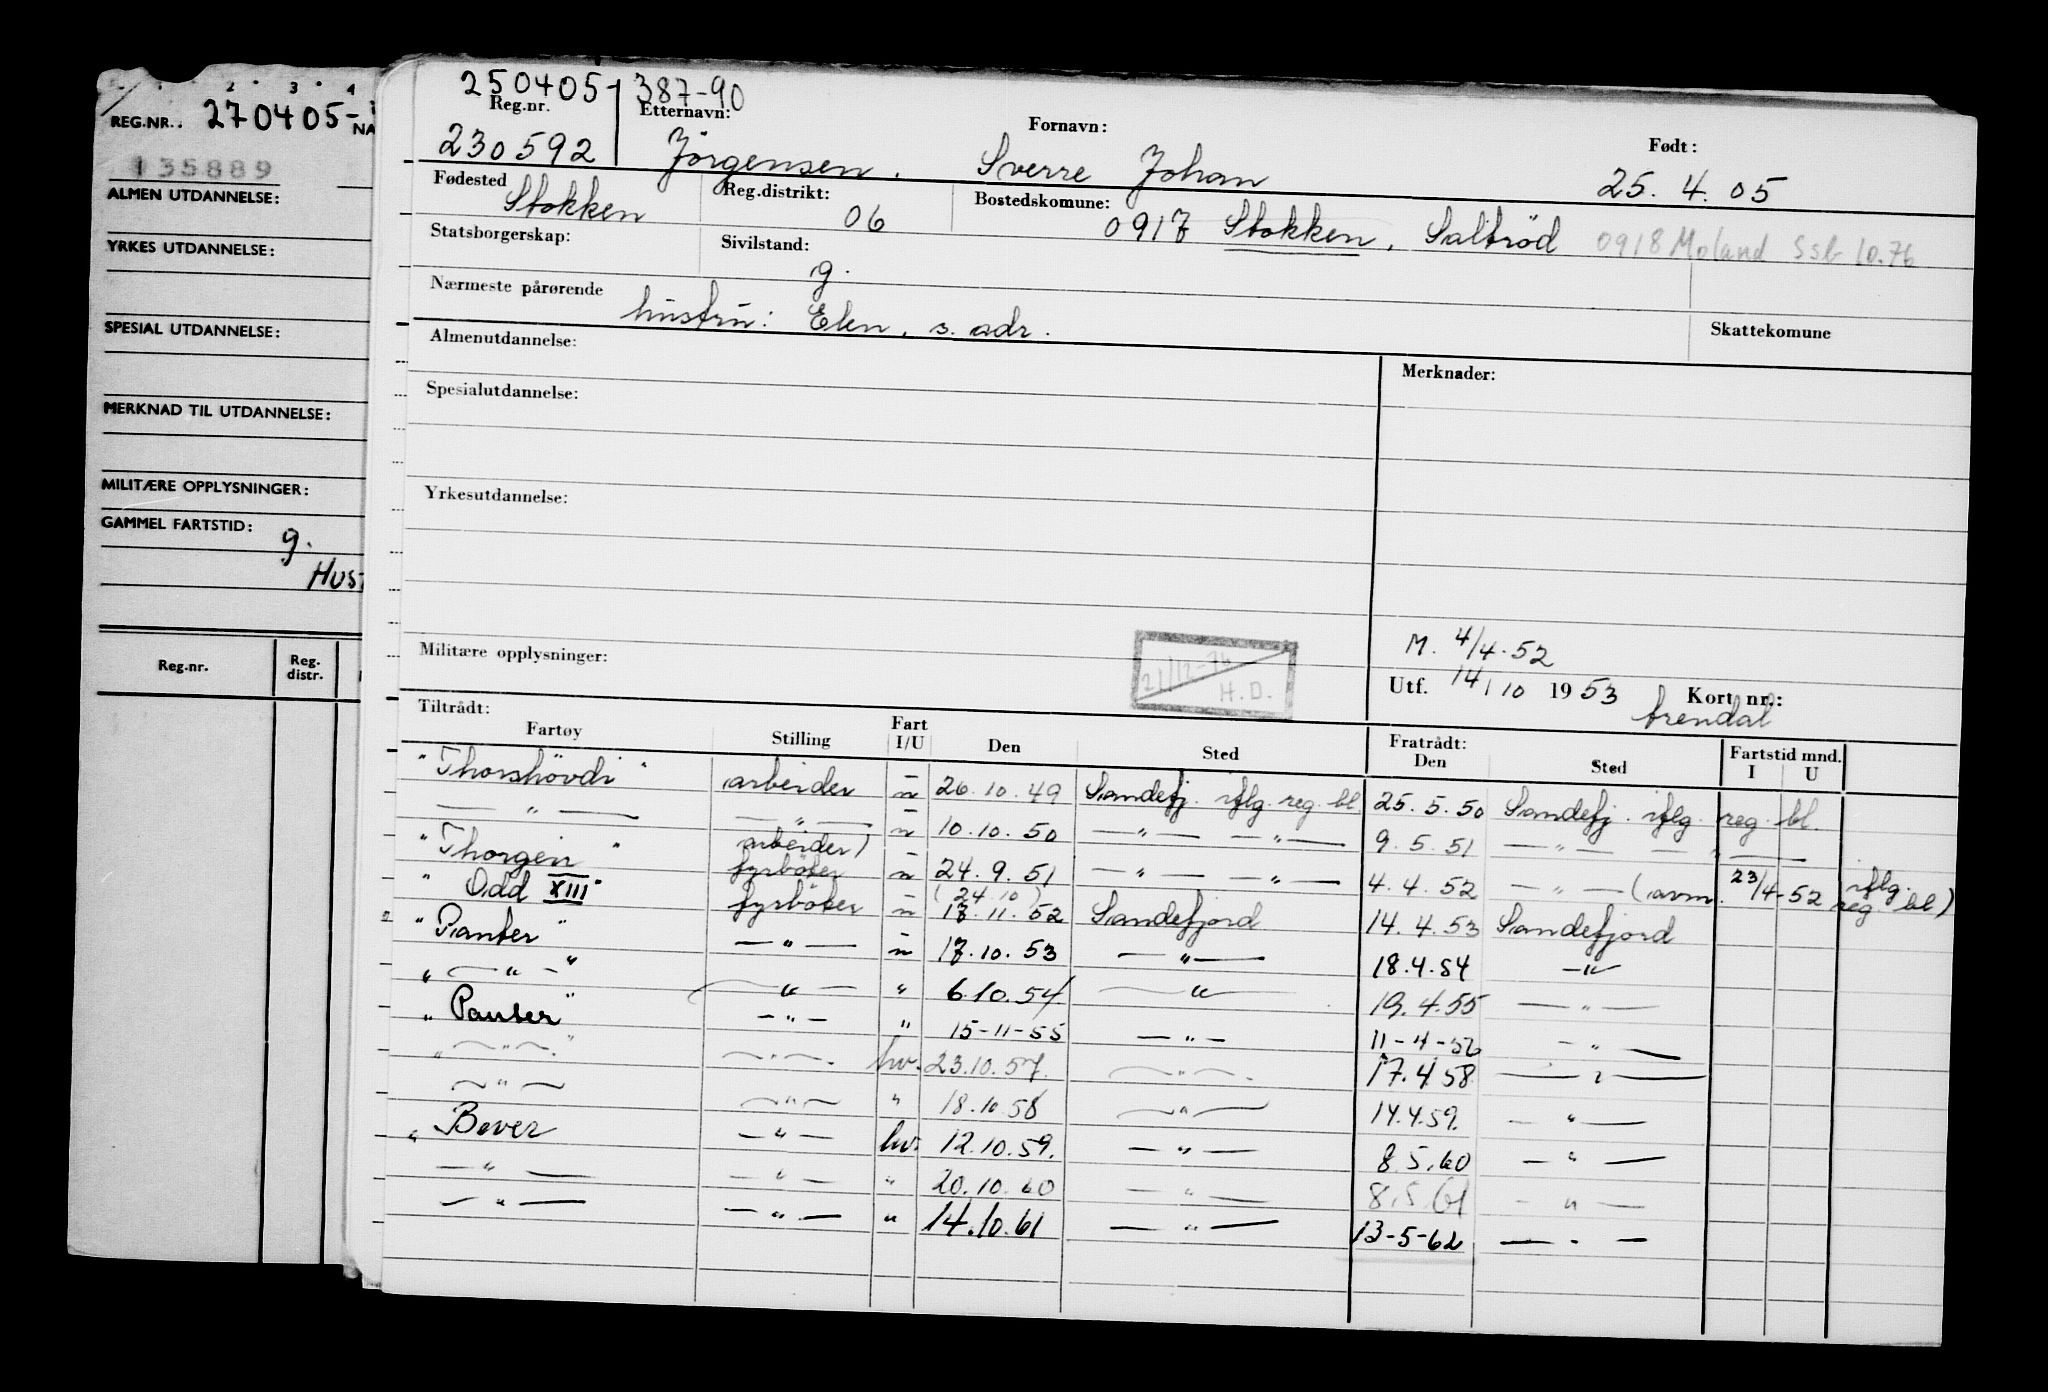 1 2 3 4
REG.NR.. 270405-
NA
135889
ALMEN UTDANNELSE:
YRKES UTDANNELSE:
SPESIAL UTDANNELSE:
MERKNAD TIL UTDANNELSE:
MILITÆRE OPPLYSNINGER:
GAMMEL FARTSTID:
g.
HUST
Reg.nr. Reg. distr.
250405-387-90
Reg.nr. Etternavn: Fornavn: Født:
230592 Jörgensen. Sverre Johan 25. 4. 05
Fødested Reg.distrikt: Bostedskomune:
Stokken 06 0917 Stokken, Saltröd 0918 Moland SSb 10.76
Statsborgerskap: Sivilstand:
g.
Nærmeste pårørende Skattekomune
hustru: Elen, s. adr.
Almenutdannelse: Merknader:
Spesialutdannelse:
Yrkesutdannelse:
M. 4/4-52
Militære opplysninger: 21/12-76 H.D.
Utf. 14/10 1953 Kort nr.:
Arendal
Tiltrådt: Fratrådt:
Fartøy Stilling Fart I/U Den Sted Den Sted Fartstid mnd. I U
"Thorshövdi" arbeider u 26.10.49 Sandefj. iflg. reg. bl. 25.5.50 Sandefj. iflg. reg. bl.
—"— —"— u 10.10.50 —"— —"— 9.5.51 —"— —"—
"Thorgen" arbeider) fyrböter u 24.9.51 —"— —"— 4.4.52 —"— (avm. 23/4-52 iflg. reg. bl)
" Odd XIII" fyrböter u (24 10) 17.11.52 Sandefjord 14.4.53 Sandefjord
"Panter" —"— u 17.10.53 —"— 18.4.54 —"—
" —"— " —"— " 6.10.54 —"— 19.4.55 —"—
" Panter" —"— " 15-11-55 —"— 11-4-56 —"—
" —"— " —"— hv. 23.10.57. —"— 17.4.58 —"—
—"— —"— " 18.10.58 —"— 14.4.59. —"—
" Bever —"— hv. 12.10.59. —"— 8.5.60 —"—
—"— —"— " 20.10.60 —"— 8.5.61 —"—
—"— —"— " 14.10.61 —"— 13-5-62 —"—